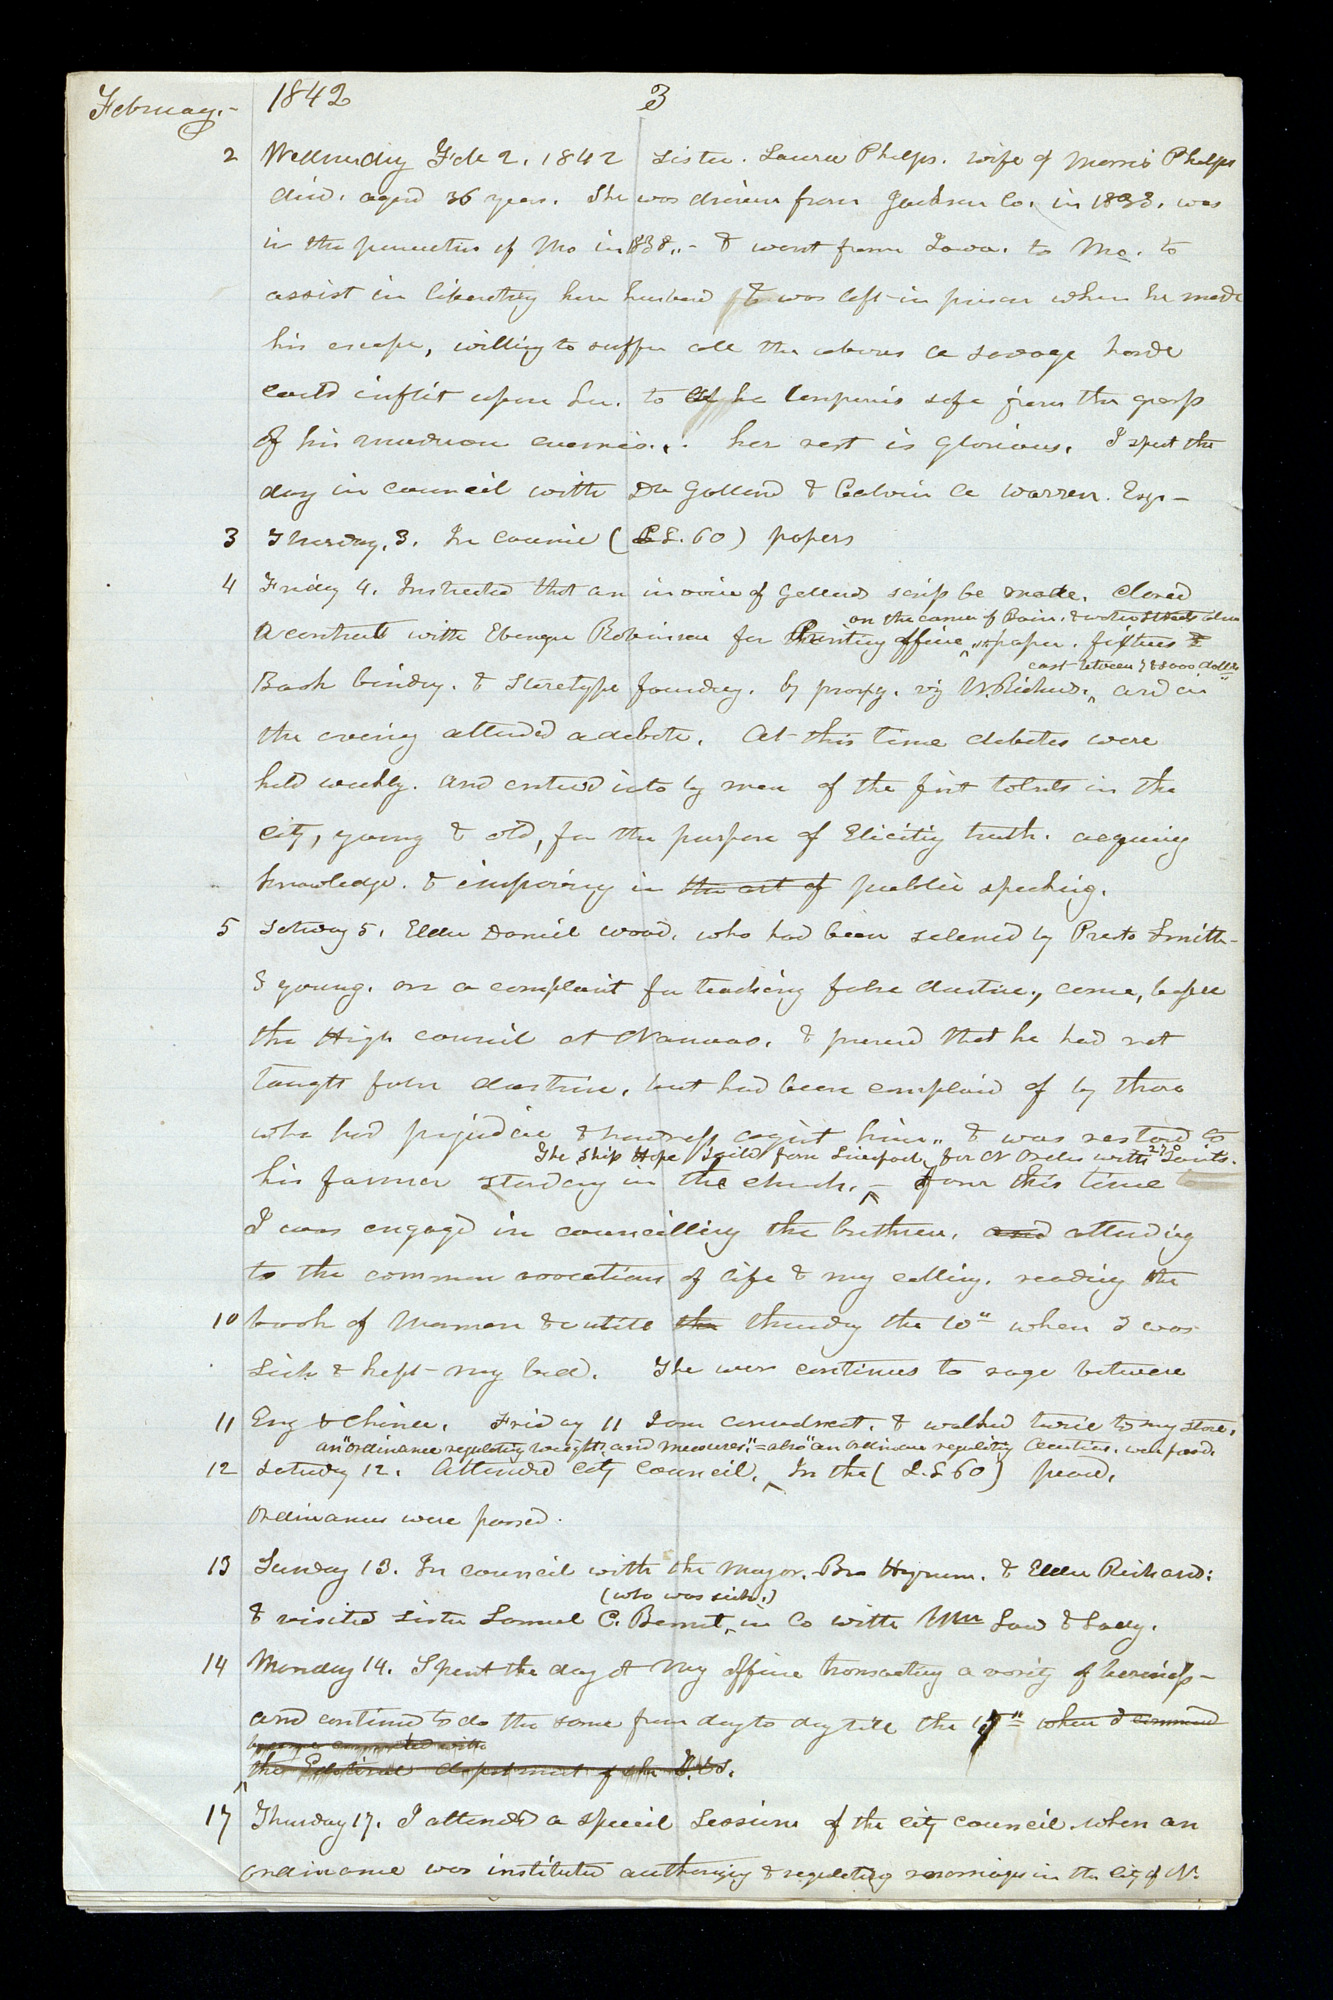 February.- 1842 3
2 Wednesday Feb 2. 1842 Sister. Laura Phelps. wife of Morris Phelps
died. aged 36 years. She was driven from Jackson Co. in 1833. was
in the of Mo in 1838.- & went from Iowa. to Mo. to
assist in liberating her husband & was left in prison when he made
his escape, willing to suffer all the abuses a savage horde
could inflict upon her. to be companis safe from the grasp
of his murderous enemies.. her rest is glorious. I spent the
day in council with Dr Galland & Calvin A Warren. Esqr-
3 Thursday. 3. In council (L.S. 60) papers
4 Friday 4. Instructed that an invoice of Gallands scrip be made. closed
on the corner of Bain. & water streets also
a contract with Ebenezer Robinson for Printing office, paper. fixtures &
cost between 7 & 8000 dollars
Book bindry. & Steretype foundry. by proxy. viz W. Richards. and in
the evening attended a debate. At this time debates were
held weekly. and entered into by men of the first talents in the
city, young & old, for the purpose of Eliciting truth. acquiring
knowledge. & improving in the art of public speaking.
5 Saturday 5. Elder Daniel Wood. who had been silenced by Prests Smith-
& young. on a complaint for teaching false doctrine, came, before
the High council at Nauvoo. & proved that he had not
taught false doctrine. but had been complaind of by those
who had prejudice & hardness against him.. & was restored to
The ship Hope Saild from Liverpool, for N Orles with 270 Saints.
his former standing in the church.- from this time
I was engaged in councilling the brethren. and attending
to the common avocations of life & my calling. reading the
10 book of Mormon &c untill the thursday the 10" when I was
sick & kept my bed. The war continues to rage between
11 Eng & China. Friday 11 I am convalescent. & walked twice to my store.
an "ordinance regulating weights and measures;"= also "an ordinance regulating Auctions. were passed.
12 Saturday 12. Attended city council. In the (L.S 60)
ordinances were passed.
13 Sunday 13. In council with the mayor. Bro Hyrum. & Elder Richards:
(who was sick.)
& visited sister Samuel C. Bennet, in Co with Wm Law & Lady.
14 Monday 14. Spent the day at my office transacting a variety of business-
and continued to do the same from day to day till the 17" when I commenced
the Editorial department of the T. & S.
17 Thursday 17. I attended a special Session of the city council. when an
ordinance was instituted authorizing & regulating marriages in the city of N.